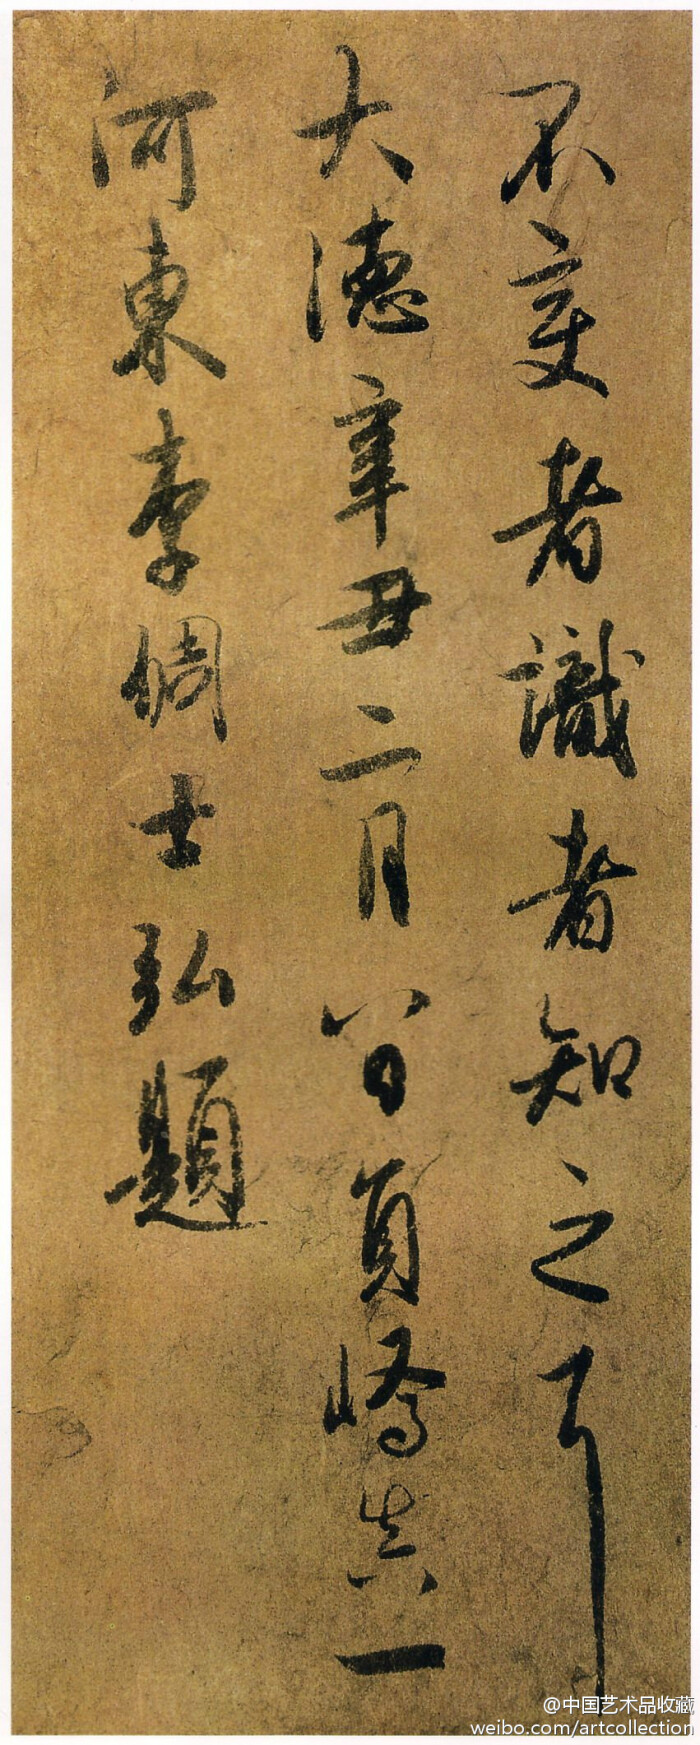 不変者識者知之耳
大德辛丑二月八日員嶠真一
河東李倜士弘題
@中国艺术品收藏
weibo.com/artcollection